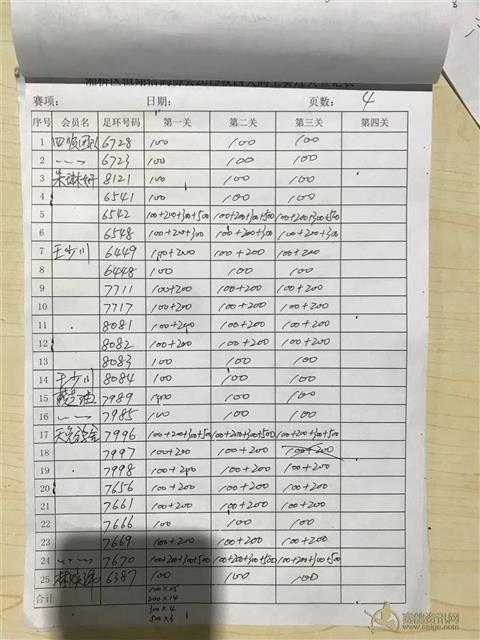 赛项： 日期： 页数： 4
序号 会员名 足环号码 第一关 第二关 第三关 第四关
1 6728 100 100 100
2 〃 6723 100 100 100
3 8121 100 100 100
4 6541 100 100 100
5 6542 100+200+300+500 100+200+300+500 100+200+300+500
6 6548 100+200+300 100+200+300 100+200+300
7 王少川 6449 100+200 100+200 100+200
8 6448 100 100 100
9 7711 100+200 100+200 100+200
10 7717 100+200 100+200 100+200
11 8081 100+200 100+200 100+200
12 8082 100+200 100+200 100+200
13 8083 100 100 100
14 王少川 8084 100 100 100
15 7989 100 100 100
16 〃 7985 100 100 100
17 7996 100+200+300+500 100+200+300+500 100+200+300+500
18 7997 100+200 100+200 100+200
19 7998 100+200 100+200 100+200
20 7656 100+200 100+200 100+200
21 7661 100+200 100+200 100+200
22 7666 100 100 100
23 7669 100+200 100+200 100+200
24 〃 7670 100+200+300+500 100+200+300+500 100+200+300+500
25 6387 100 100 100
合计 100×25
200×14
300×4
500×3
赛鸽资讯网
www.saige.com